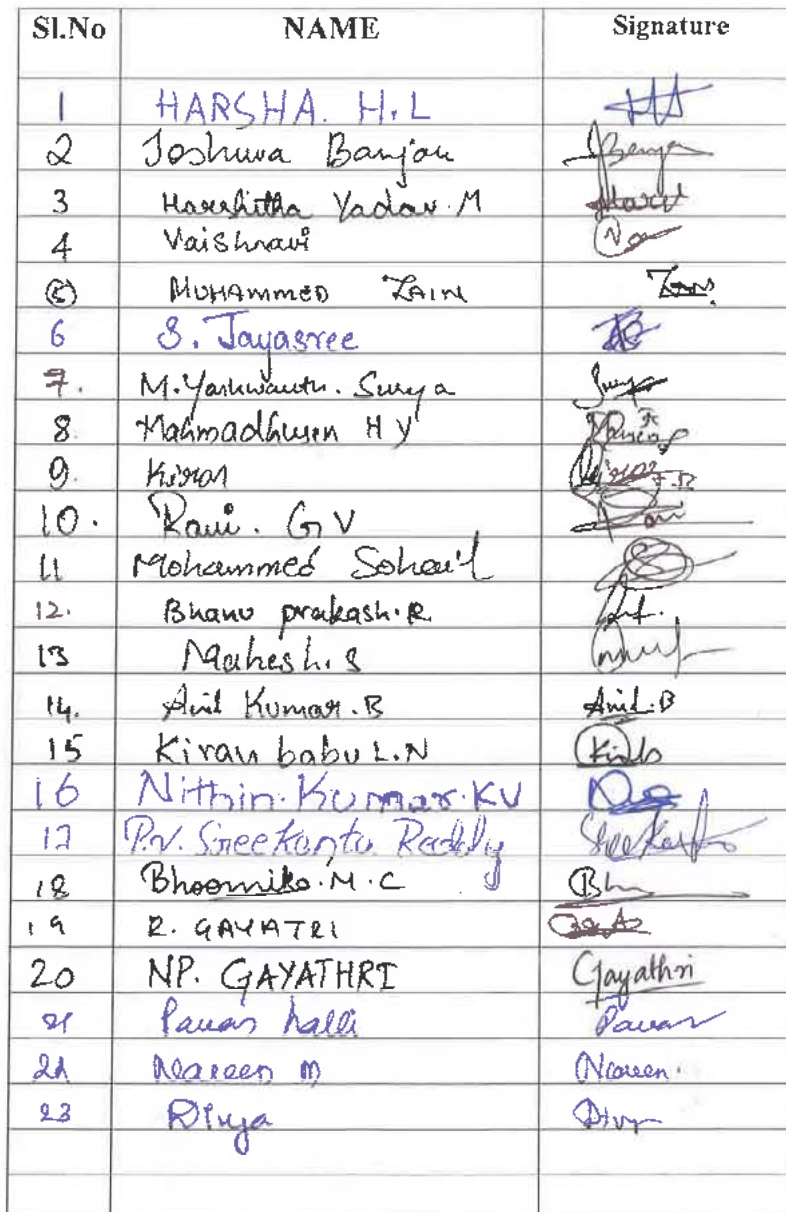 Sl.No NAME Signature
1 HARSHA. H.L
2 Joshuva Banjan
3 Harshitha Yadav.M
4 Vaishnavi
5 MUHAMMED ZAIN Zain
6 S. Jayasree
7. M.Yashwanth. Surya
8. Mahmadhusen H Y
9. Kiran
10. Ravi. G V
11 Mohammed Sohail
12. Bhanu prakash.R
13 Mahesh.S
14. Anil Kumar.B Anil.B
15 Kiran babu L.N
16 Nithin.Kumar.KV
17 P.V. Sreekanta Reddy
18 Bhoomika.M.C
19 R. GAYATRI
20 NP. GAYATHRI Gayathri
21 Pavan halli Pavan
22 Naveen M Naveen.
23 Divya